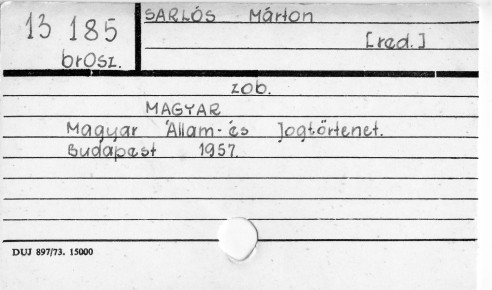 13 185
brosz.
SARLÓS Márton
[red.]
zob.
MAGYAR
Magyar Állam- és Jogtörtenet.
Budapest 1957.
DUJ 897/73. 15000